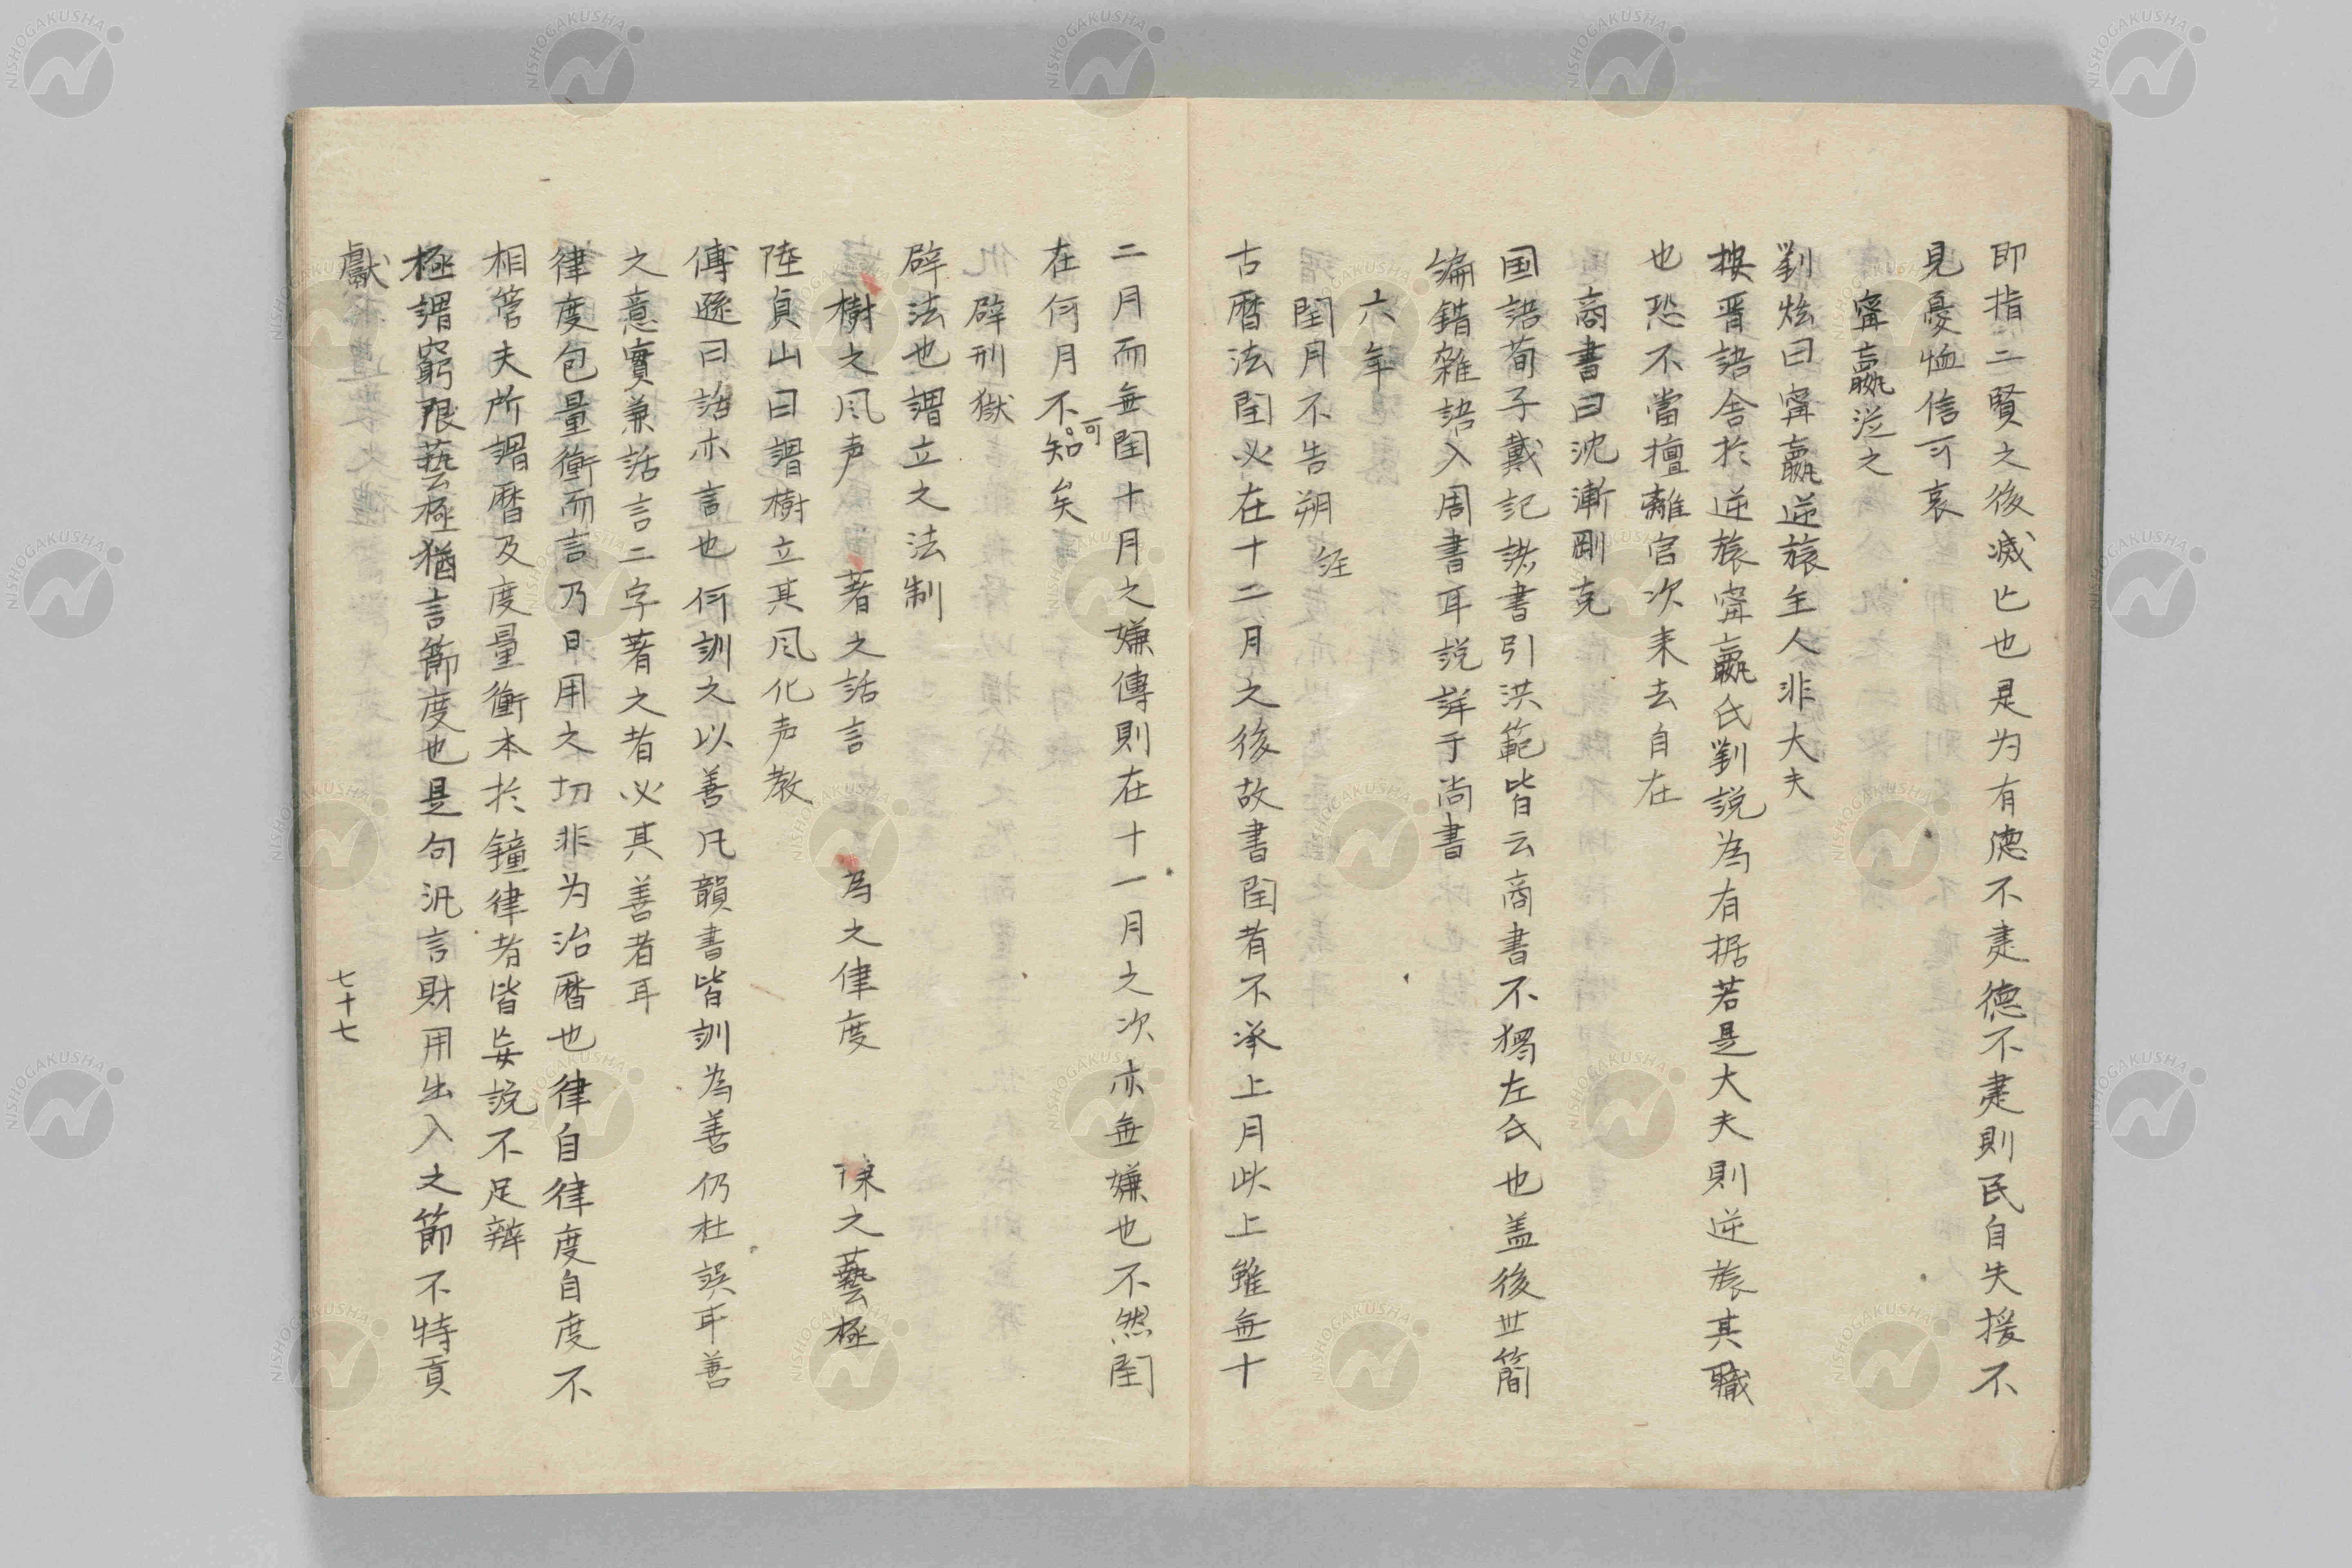 即指二賢之後滅亡也是为有德不建德不建則民自失援不
見憂恤信可哀
甯嬴从之
劉炫曰甯嬴逆旅主人非大夫
按晋語舎於逆旅甯嬴氏劉説為有据若是大夫則逆旅其職
也恐不當擅離官次来去自在
商書曰沈漸剛克
国語荀子戴記諸書引洪範皆云商書不獨左氏也盖後世簡
編錯雑誤入周書耳説詳于尚書
六年
閏月不告朔 経
古暦法閏必在十二月之後故書閏者不承上月此上雖無十
二月而無閏十月之嫌傳則在十一月之次亦無嫌也不然閏
在何月不可知矣
辟刑獄
辟法也謂立之法制
樹之风声 著之話言 為之律度 陳之藝極
陸貞山曰謂樹立其风化声教
傅遜曰話亦言也何訓之以善凡韻書皆訓為善仍杜誤耳善
之意實兼話言二字著之者必其善者耳
律度包量衡而言乃日用之切非为治暦也律自律度自度不
相管夫所謂暦及度量衡本於鐘律者皆妄説不足辨
極謂窮限藝極猶言節度也是句汎言財用出入之節不特貢
獻
七十七
NISHOGAKUSHA